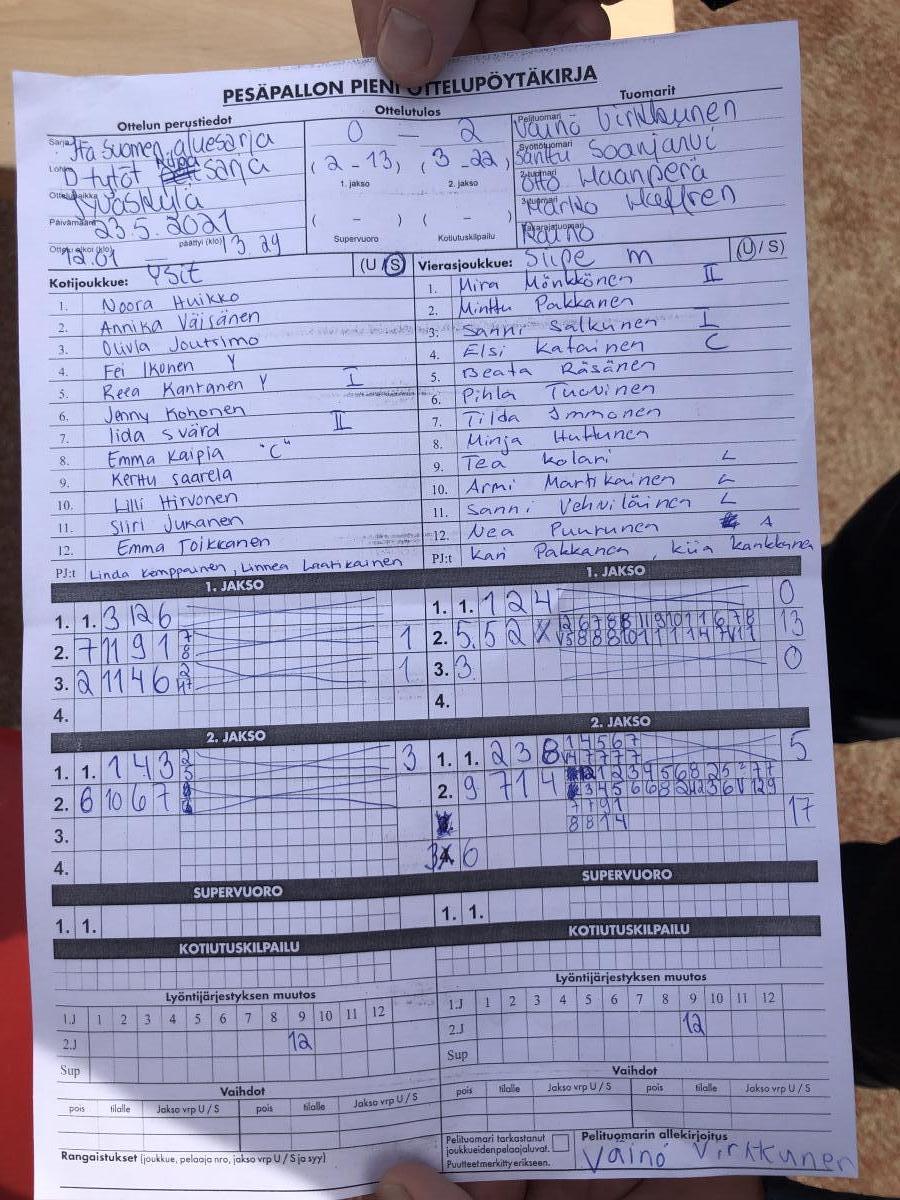 PESÄPALLON PIENI OTTELUPÖYTÄKIRJA
Ottelun perustiedot
Ottelutulos
Tuomarit
Sarja Itä Suomen aluesarja
0 — 2
Pelituomari Väinö Virkkunen
Lohko D tytöt sarja
(2-13, (3-22)
Syöttötuomari Santtu Saarijärvi
1. jakso 2. jakso
Ottelupaikka Jyväskylä
2-tuomari Otto Haanperä
Päivämäärä 23.5.2021
( - ) ( - )
3-tuomari Marko
Ottelu alkoi (klo) 12.01 päättyi (klo) 13.29
Supervuoro Kotiutuskilpailu
Takarajatuomari Raino
Kotijoukkue: Ysit (U/S)
Vierasjoukkue: Siipe m (U/S)
1. Noora Huikko
2. Annika Väisänen
3. Olivia Joutsimo
4. Fei Ikonen Y
5. Reea Kantanen Y I
6. Jenny Kohonen
7. Iida Svärd II
8. Emma Kaipia "C"
9. Kerttu Saarela
10. Lilli Hirvonen
11. Siiri Jukanen
12. Emma Toikkanen
PJ:t Linda Kemppainen, Linnea Laatikainen
1. Mira Mönkkönen II
2. Minttu Pakkanen
3. Sanni Salkunen I
4. Elsi Katainen C
5. Beata Räsänen
6. Pihla Tuovinen
7. Tilda Immonen
8. Minja Huttunen
9. Tea Kolari L
10. Armi Martikainen L
11. Sanni Vehviläinen L
12. Nea Puurunen A
PJ:t Kari Pakkanen, Kiia Kankkunen
1. JAKSO
1. 1. 3 12 6
2. 7 11 9 1 7 8 1
3. 2 11 4 6 2 1
4.
1. JAKSO
1. 1. 1 2 4 0
2. 5. 5 2 X 13
3. 3. 0
4.
2. JAKSO
1. 1. 1 4 3 3
2. 6 10 6 7
3.
4.
2. JAKSO
1. 1. 2 3 8 1 4 5 6 7 5
2. 9 7 1 4
7 7 9 1
8 8 1 4 17
3 6
SUPERVUORO
1. 1.
SUPERVUORO
1. 1.
KOTIUTUSKILPAILU
KOTIUTUSKILPAILU
Lyöntijärjestyksen muutos
1.J 1 2 3 4 5 6 7 8 9 10 11 12
2.J 12
Sup
Lyöntijärjestyksen muutos
1.J 1 2 3 4 5 6 7 8 9 10 11 12
2.J 12
Sup
Vaihdot
pois tilalle Jakso vrp U / S pois tilalle Jakso vrp U / S
Vaihdot
pois tilalle Jakso vrp U / S pois tilalle Jakso vrp U / S
Rangaistukset (joukkue, pelaaja nro, jakso vrp U / S ja syy)
Pelituomari tarkastanut
joukkueiden pelaajaluvat.
Puutteet merkitty erikseen.
Pelituomarin allekirjoitus
Väinö Virkkunen